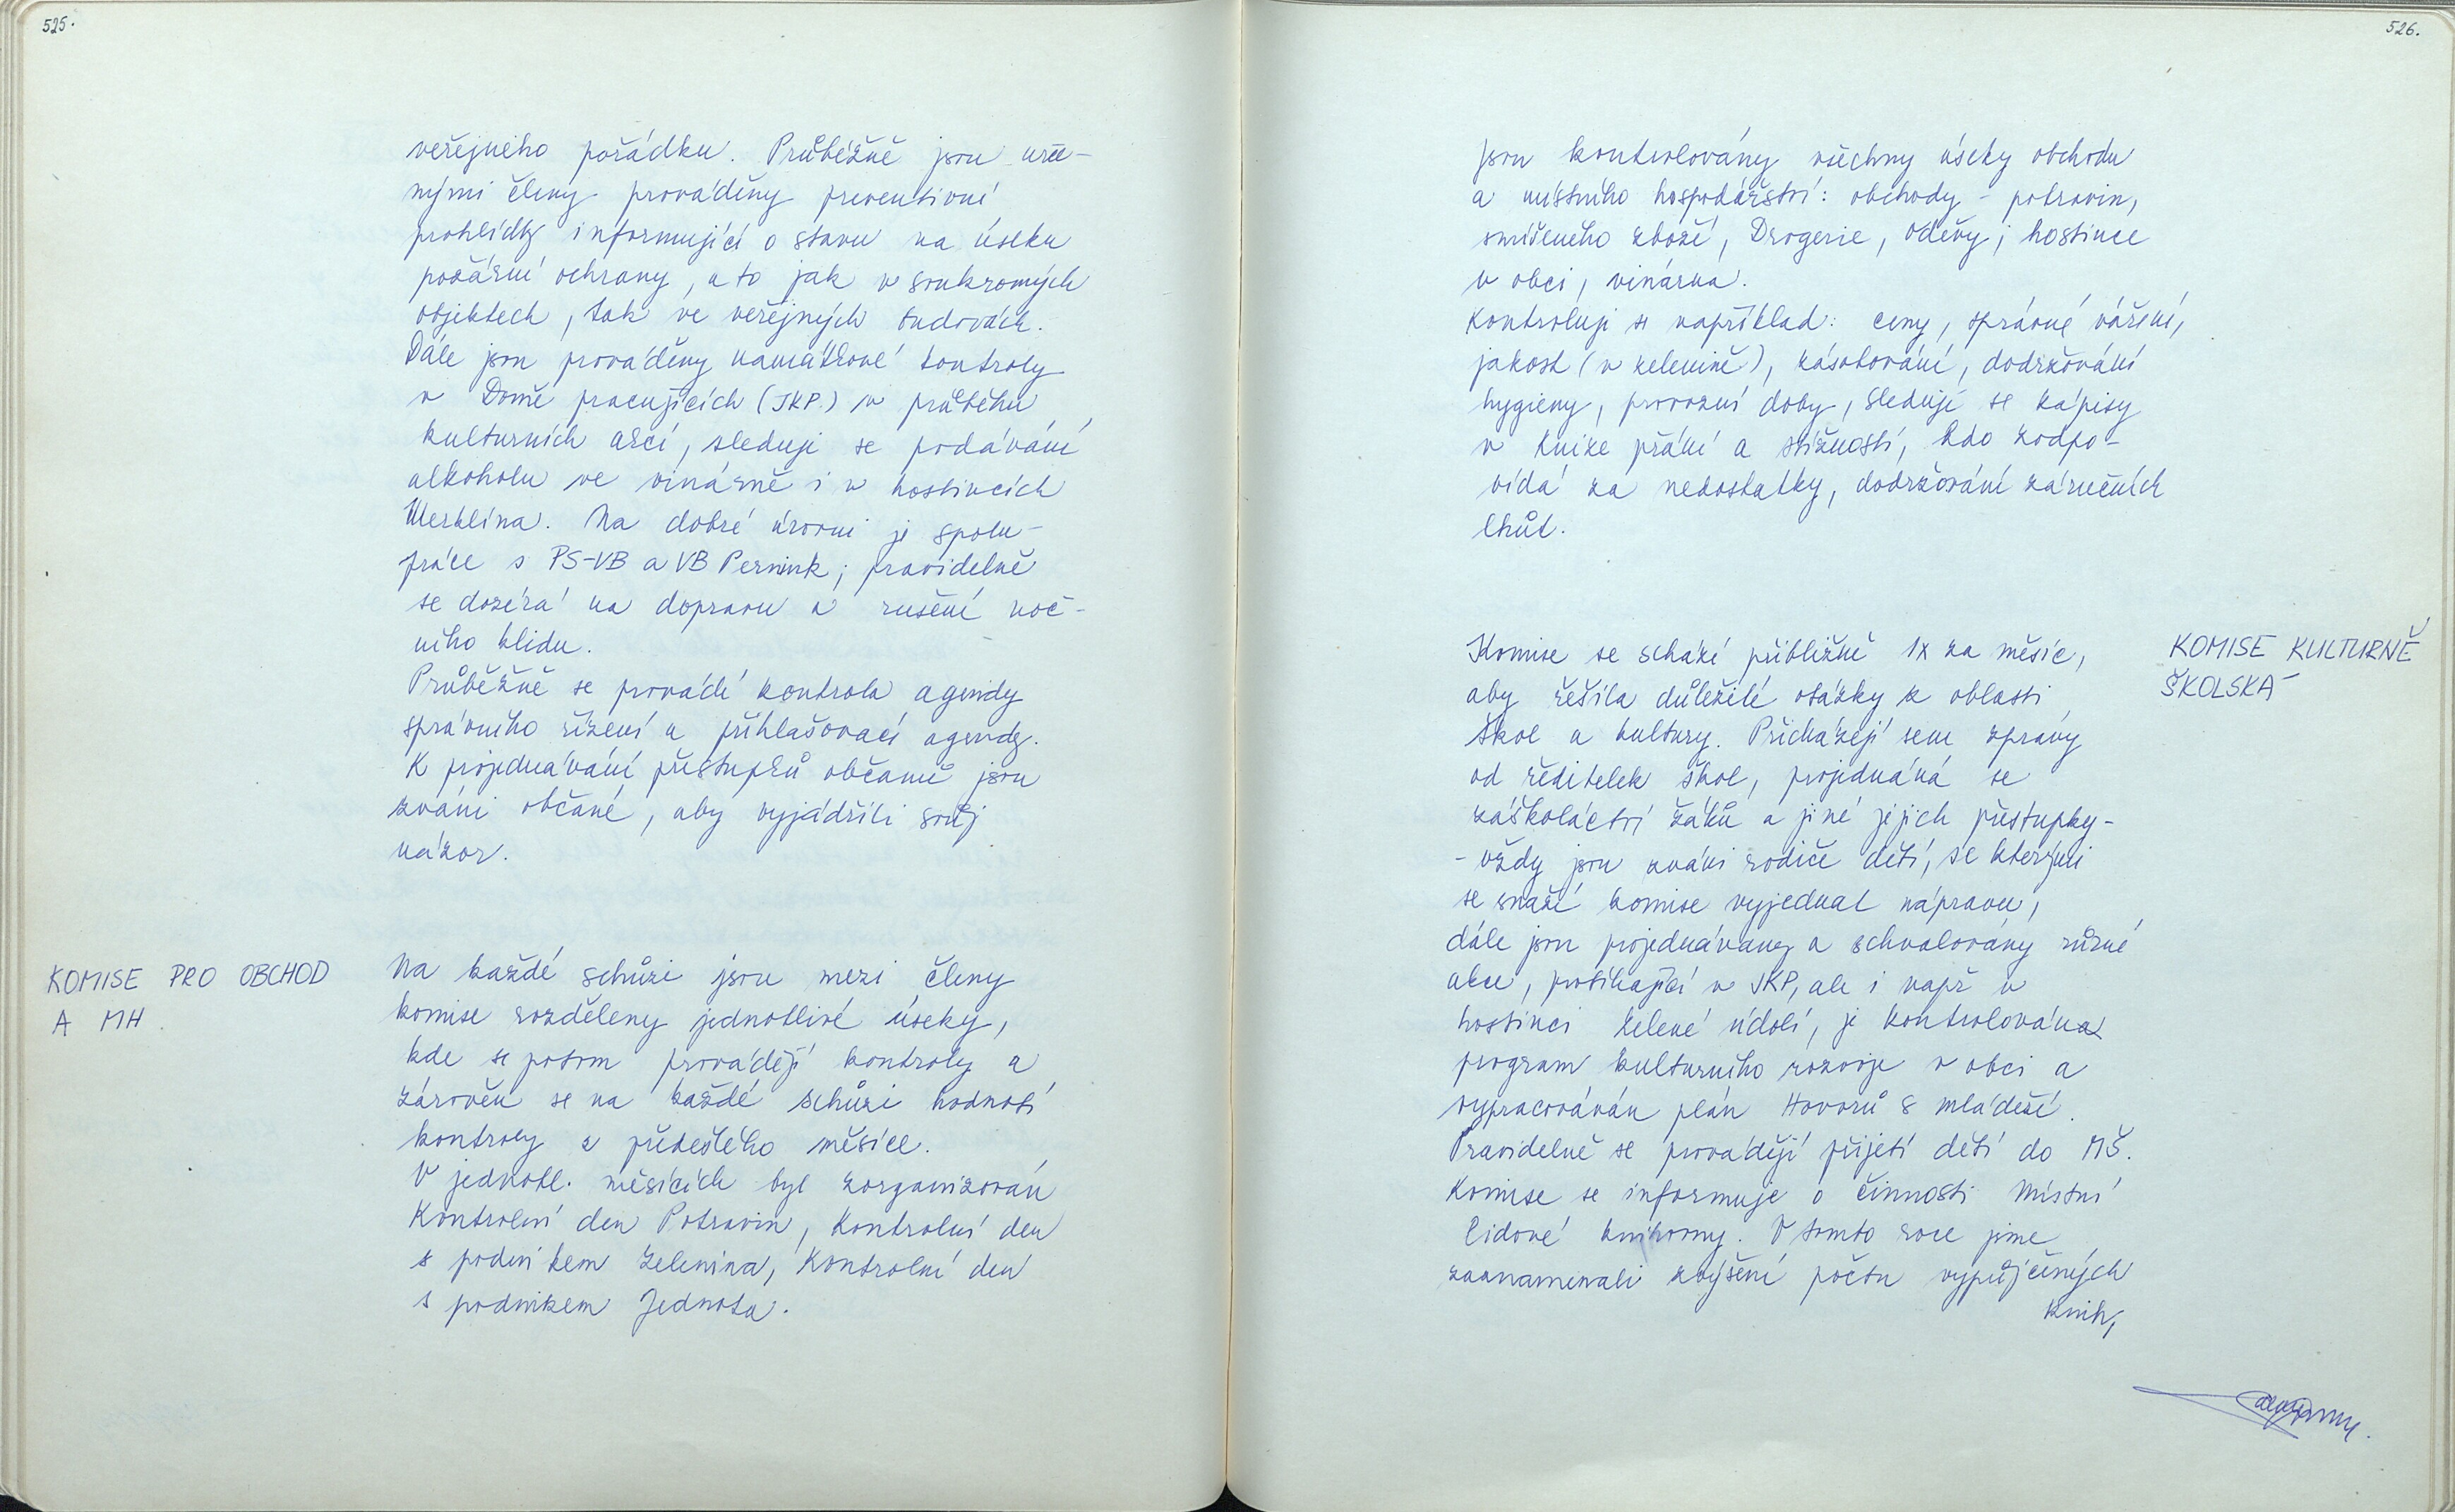 525.
veřejného pořádku. Průběžně jsou urče-
nými členy prováděny preventivní
prohlídky informující o stavu na úseku
požární ochrany, a to jak v soukromých
objektech, tak ve veřejných budovách.
Dále jsou prováděny namátkové kontroly
v Domě pracujících (JKP.) v průběhu
kulturních akcí, sleduje se podávání
alkoholu ve vinárně i v hostincích
Merklína. Na dobré úrovni je spolu-
práce s PS-VB a VB Pernink; pravidelně
se dozírá na dopravu a rušení noč-
ního klidu.
Průběžně se provádí kontrola agendy
správního řízení a přihlašovací agendy.
K projednávání přestupků občanů jsou
zváni občané, aby vyjádřili svůj
názor.
KOMISE PRO OBCHOD
A MH.
Na každé schůzi jsou mezi členy
komise rozděleny jednotlivé úseky,
kde se potom provádějí kontroly a
zároveň se na každé schůzi hodnotí
kontroly z předešlého měsíce.
V jednotl. měsících byl zorganizován
Kontrolní den Potravin, Kontrolní den
s podnikem Zelenina, Kontrolní den
s podnikem Jednota.
526.
Jsou kontrolovány všechny úseky obchodu
a místního hospodářství: obchody - potravin,
smíšeného zboží, Drogerie, oděvy; hostince
v obci, vinárna.
Kontroluji se například: ceny, správné vážení,
jakost (v zelenině), zásobování, dodržování
hygieny, provozní doby, sledují se zápisy
v knize přání a stížností, kdo zodpo-
vídá za nedostatky, dodržování záručních
lhůt.
KOMISE KULTURNĚ
ŠKOLSKÁ
Komise se schází přibližně 1x za měsíc,
aby řešila důležité otázky z oblasti
škol a kultury. Přicházejí sem zprávy
od ředitelek škol, projednává se
záškoláctví žáků a jiné jejich přestupky-
- vždy jsou zváni rodiče dětí, se kterými
se snaží komise vyjednat nápravu,
dále jsou projednávány a schvalovány různé
akce, probíhající v JKP, ale i např v
hostinci Zelené údolí, je kontrolována
program kulturního rozvoje v obci a
vypracováván plán Hovorů s mládeží.
Pravidelně se provádějí přijetí dětí do MŠ.
Komise se informuje o činnosti Místní
lidové knihovny. V tomto roce jsme
zaznamenali zvýšení počtu vypůjčených
knih,